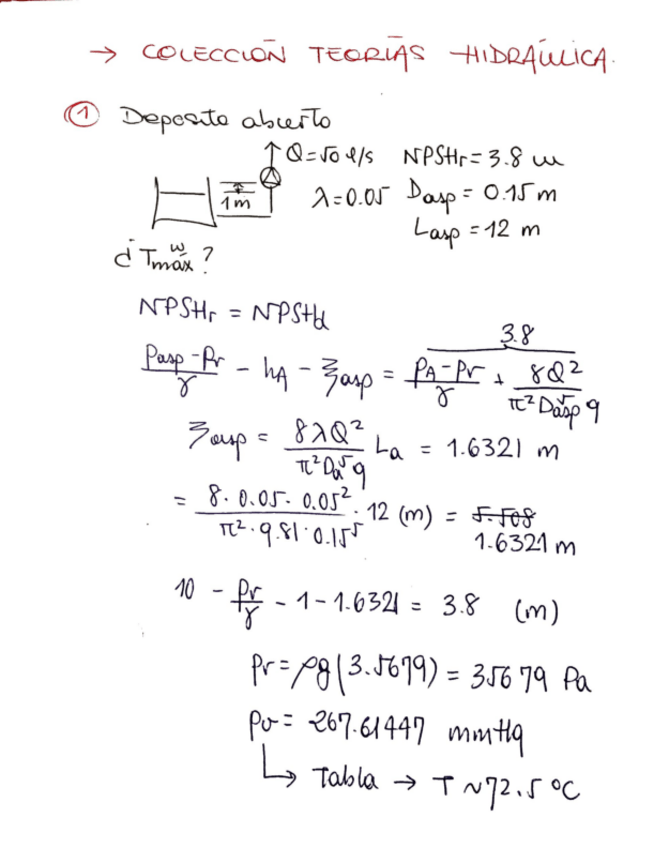 → COLECCIÓN TEORÍAS HIDRAÚLICA.
① Deposito abierto
Q=50 l/s NPSHr = 3.8 m
1m λ=0.05 Dasp = 0.15 m
Lasp = 12 m
¿ Tmáx w ?
NPSHr = NPSHd
3.8
(Pasp - Pv)/γ - hA - ξasp = (PA - Pv)/γ + 8Q²/(π² D⁵asp g)
ξasp = 8λQ²/(π² Da⁵ g) La = 1.6321 m
= (8 · 0.05 · 0.05²)/(π² · 9.81 · 0.15⁵) · 12 (m) = 5.508
1.6321 m
10 - Pv/γ - 1 - 1.6321 = 3.8 (m)
Pv = ρg (3.5679) = 35679 Pa
Pv = 267.61447 mmHg
↳ Tabla → T ~72.5 ºC